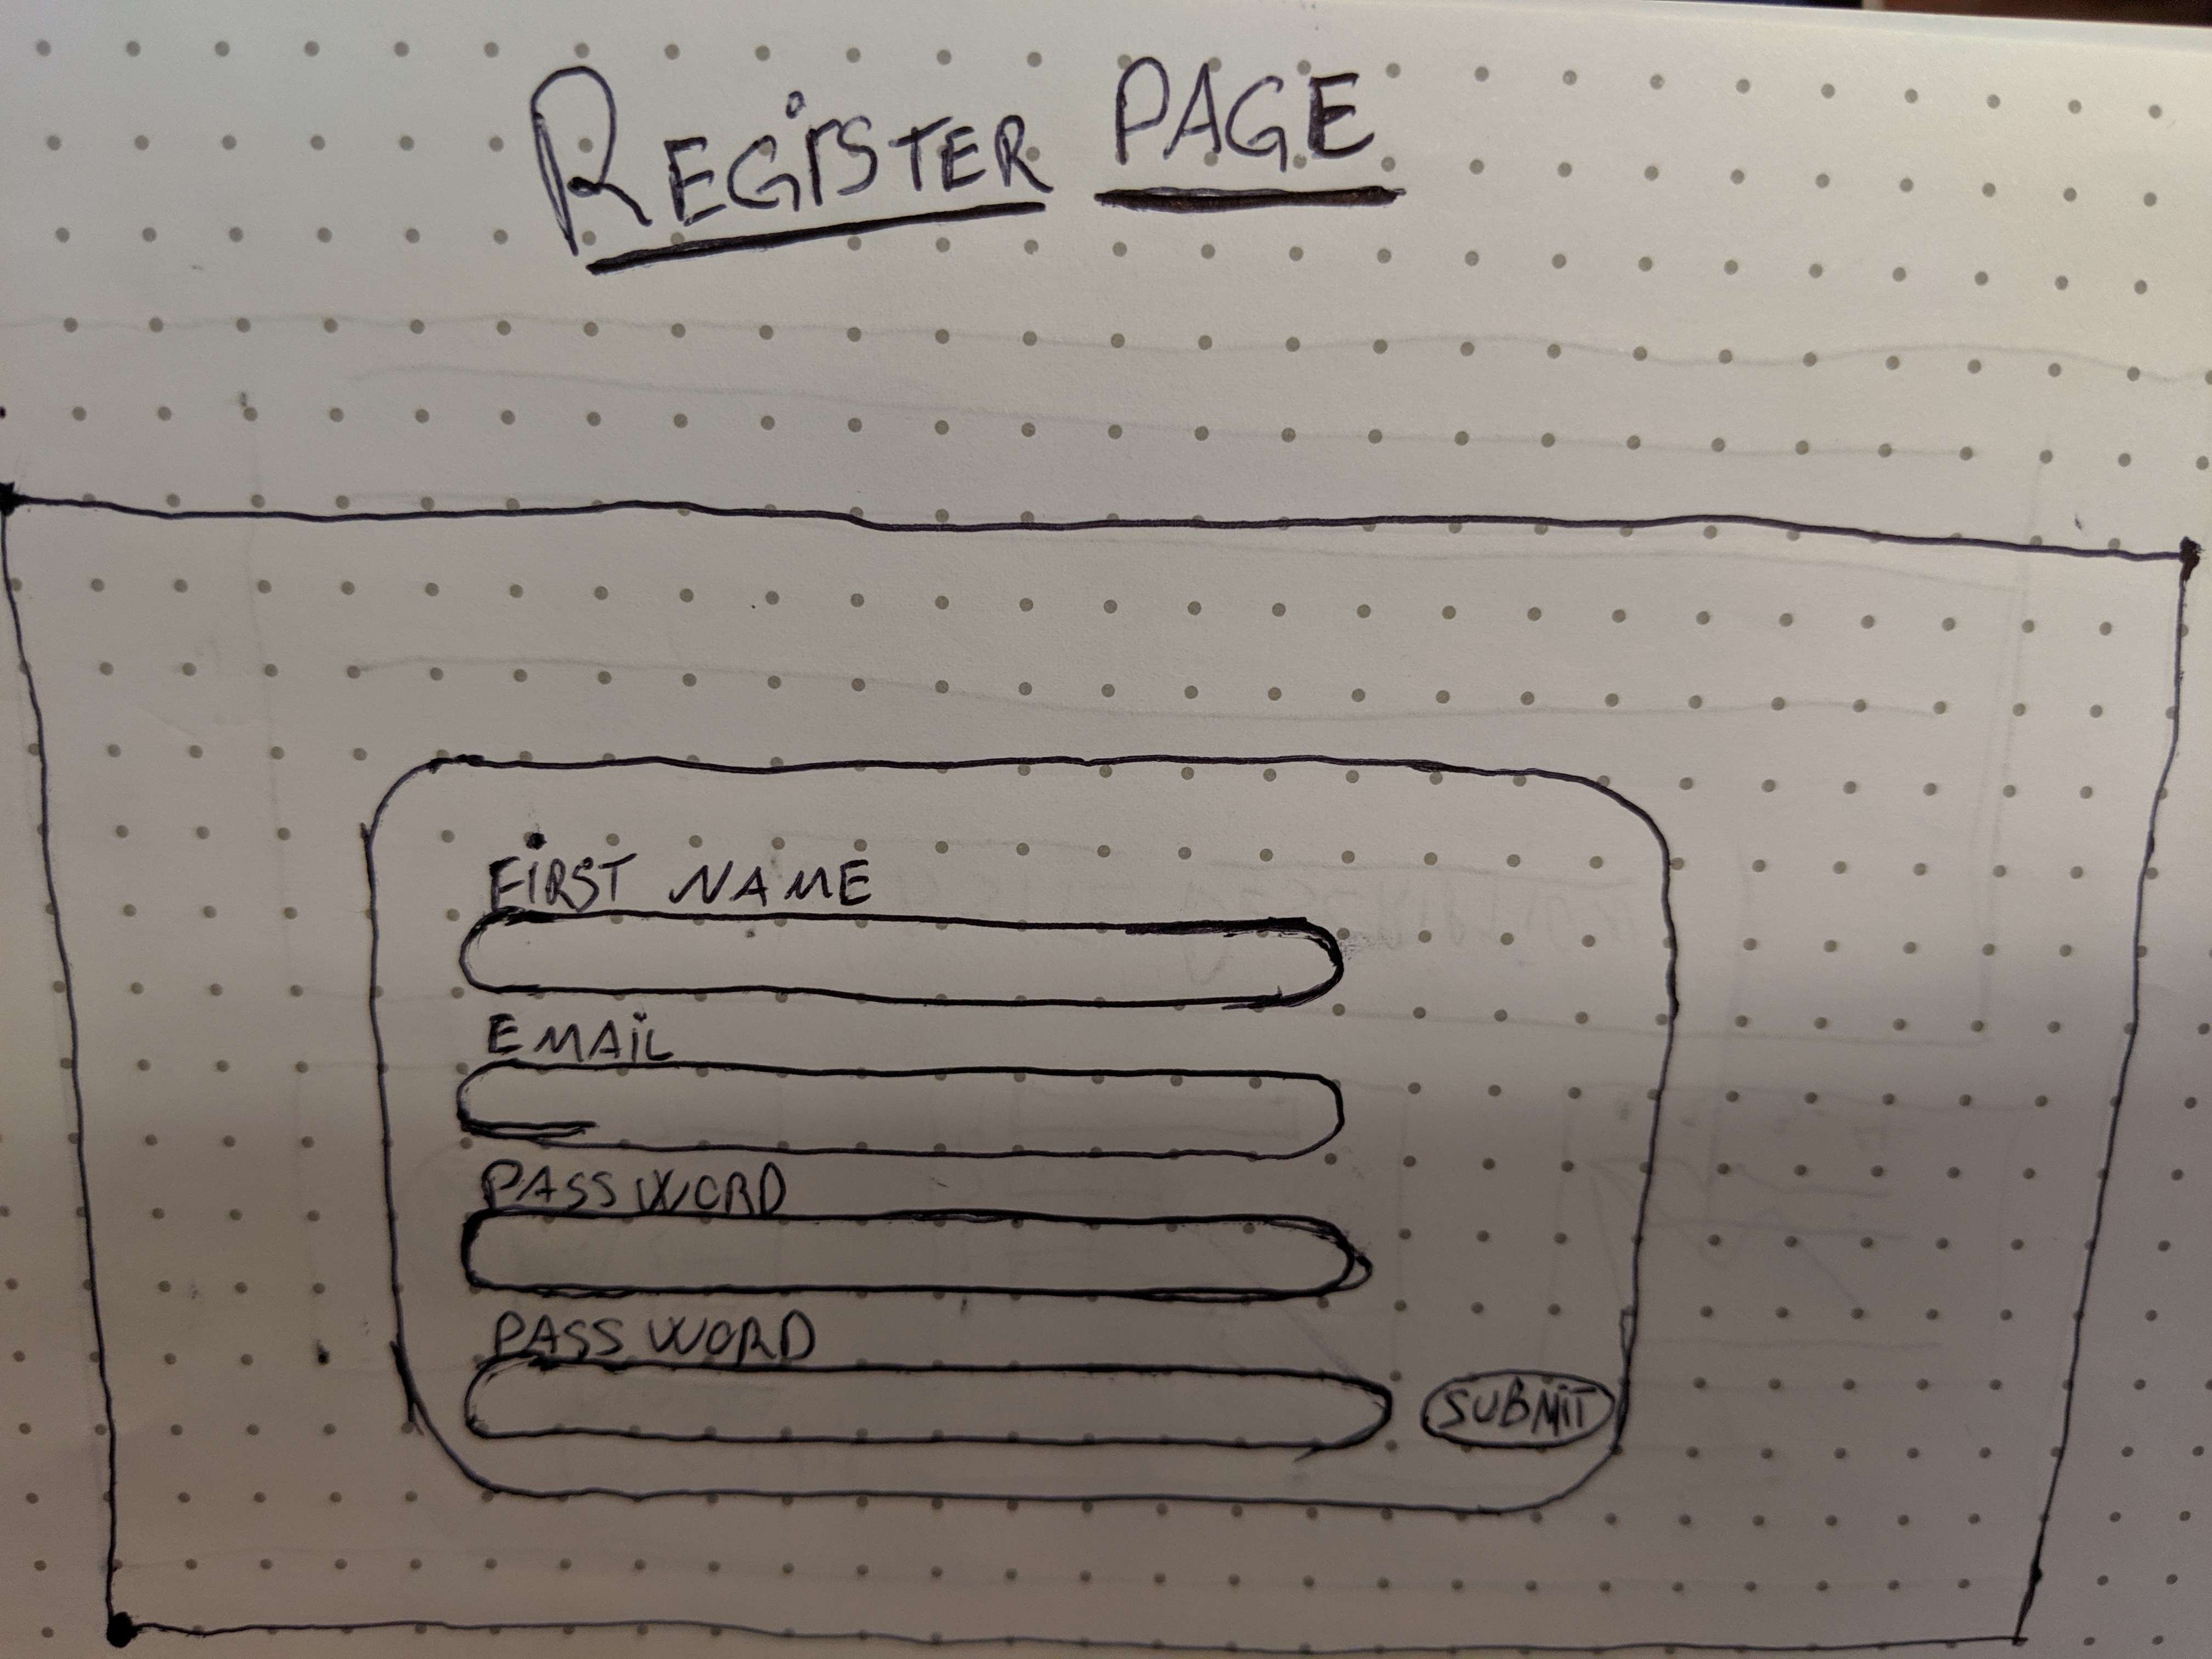 REGISTER PAGE
FIRST NAME
EMAIL
PASSWORD
PASSWORD
SUBMIT